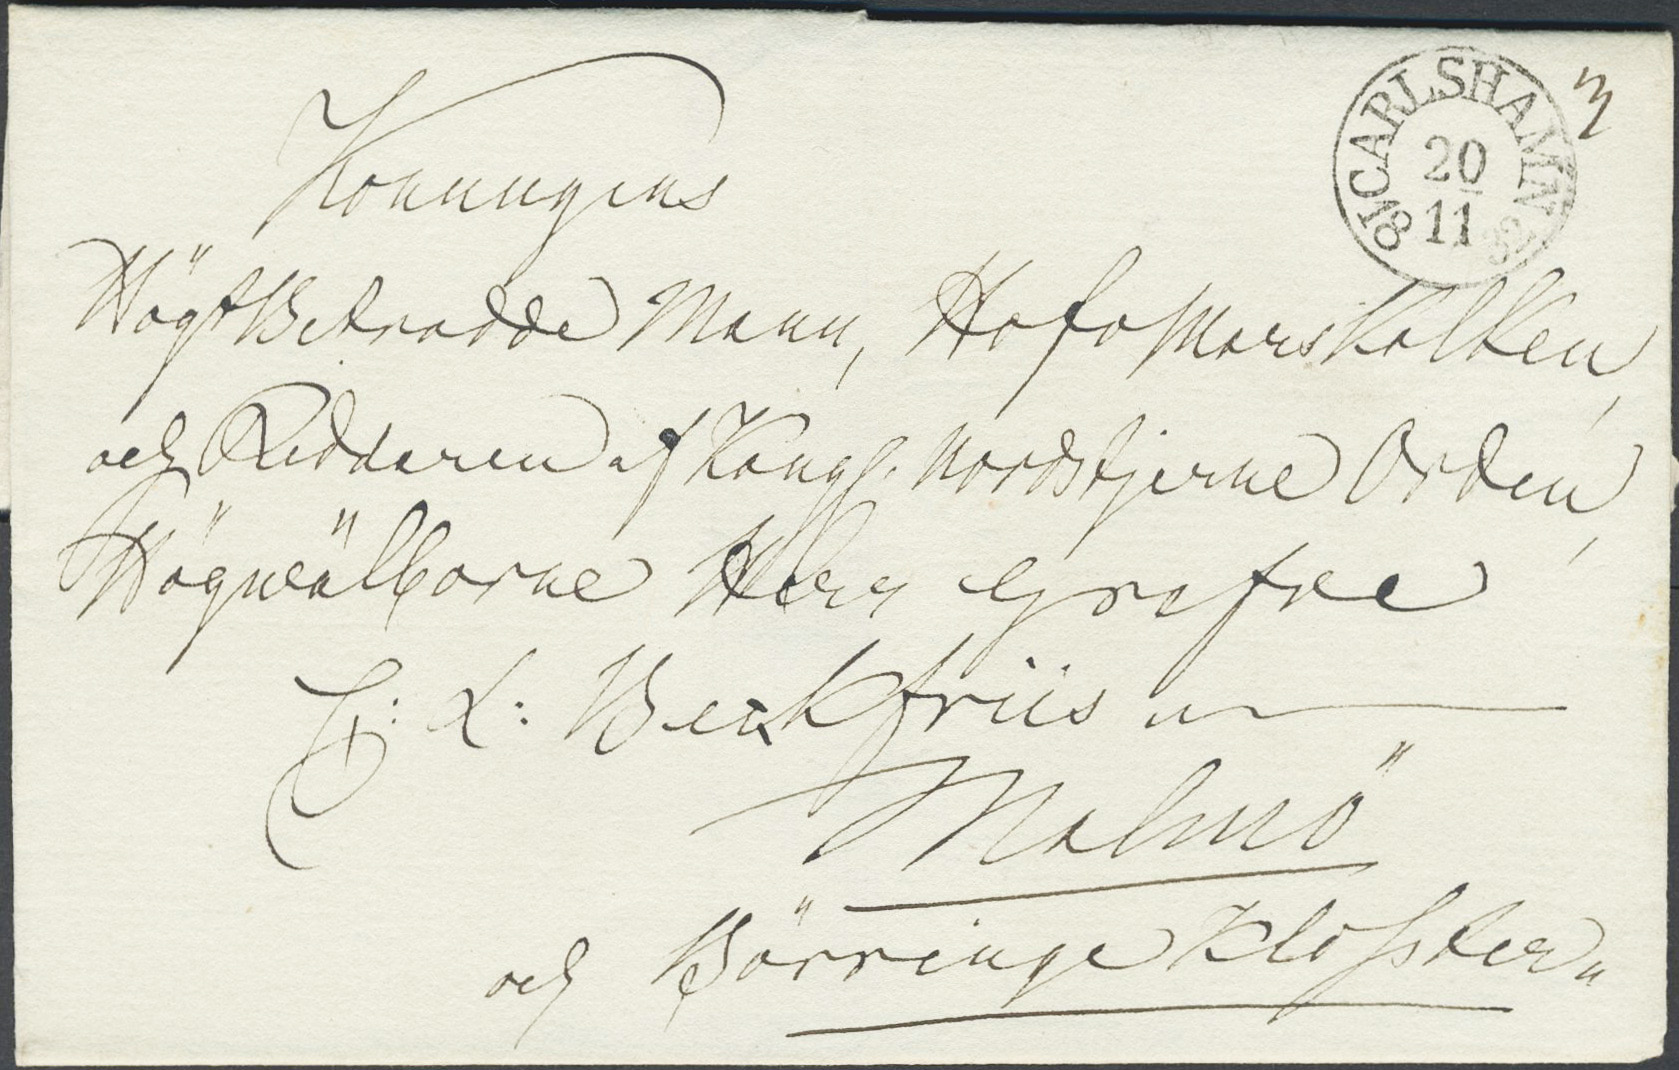 Konungens
CARLSHAMN
20
11
18 32
3
HögtBetrodde Mann, HofMarskalken,
och Riddaren af Kongl. Nordstjerne Orden,
Högwälborne Herr Grefve
C: L: BeckFriis
Malmö
och Börringe Kloster